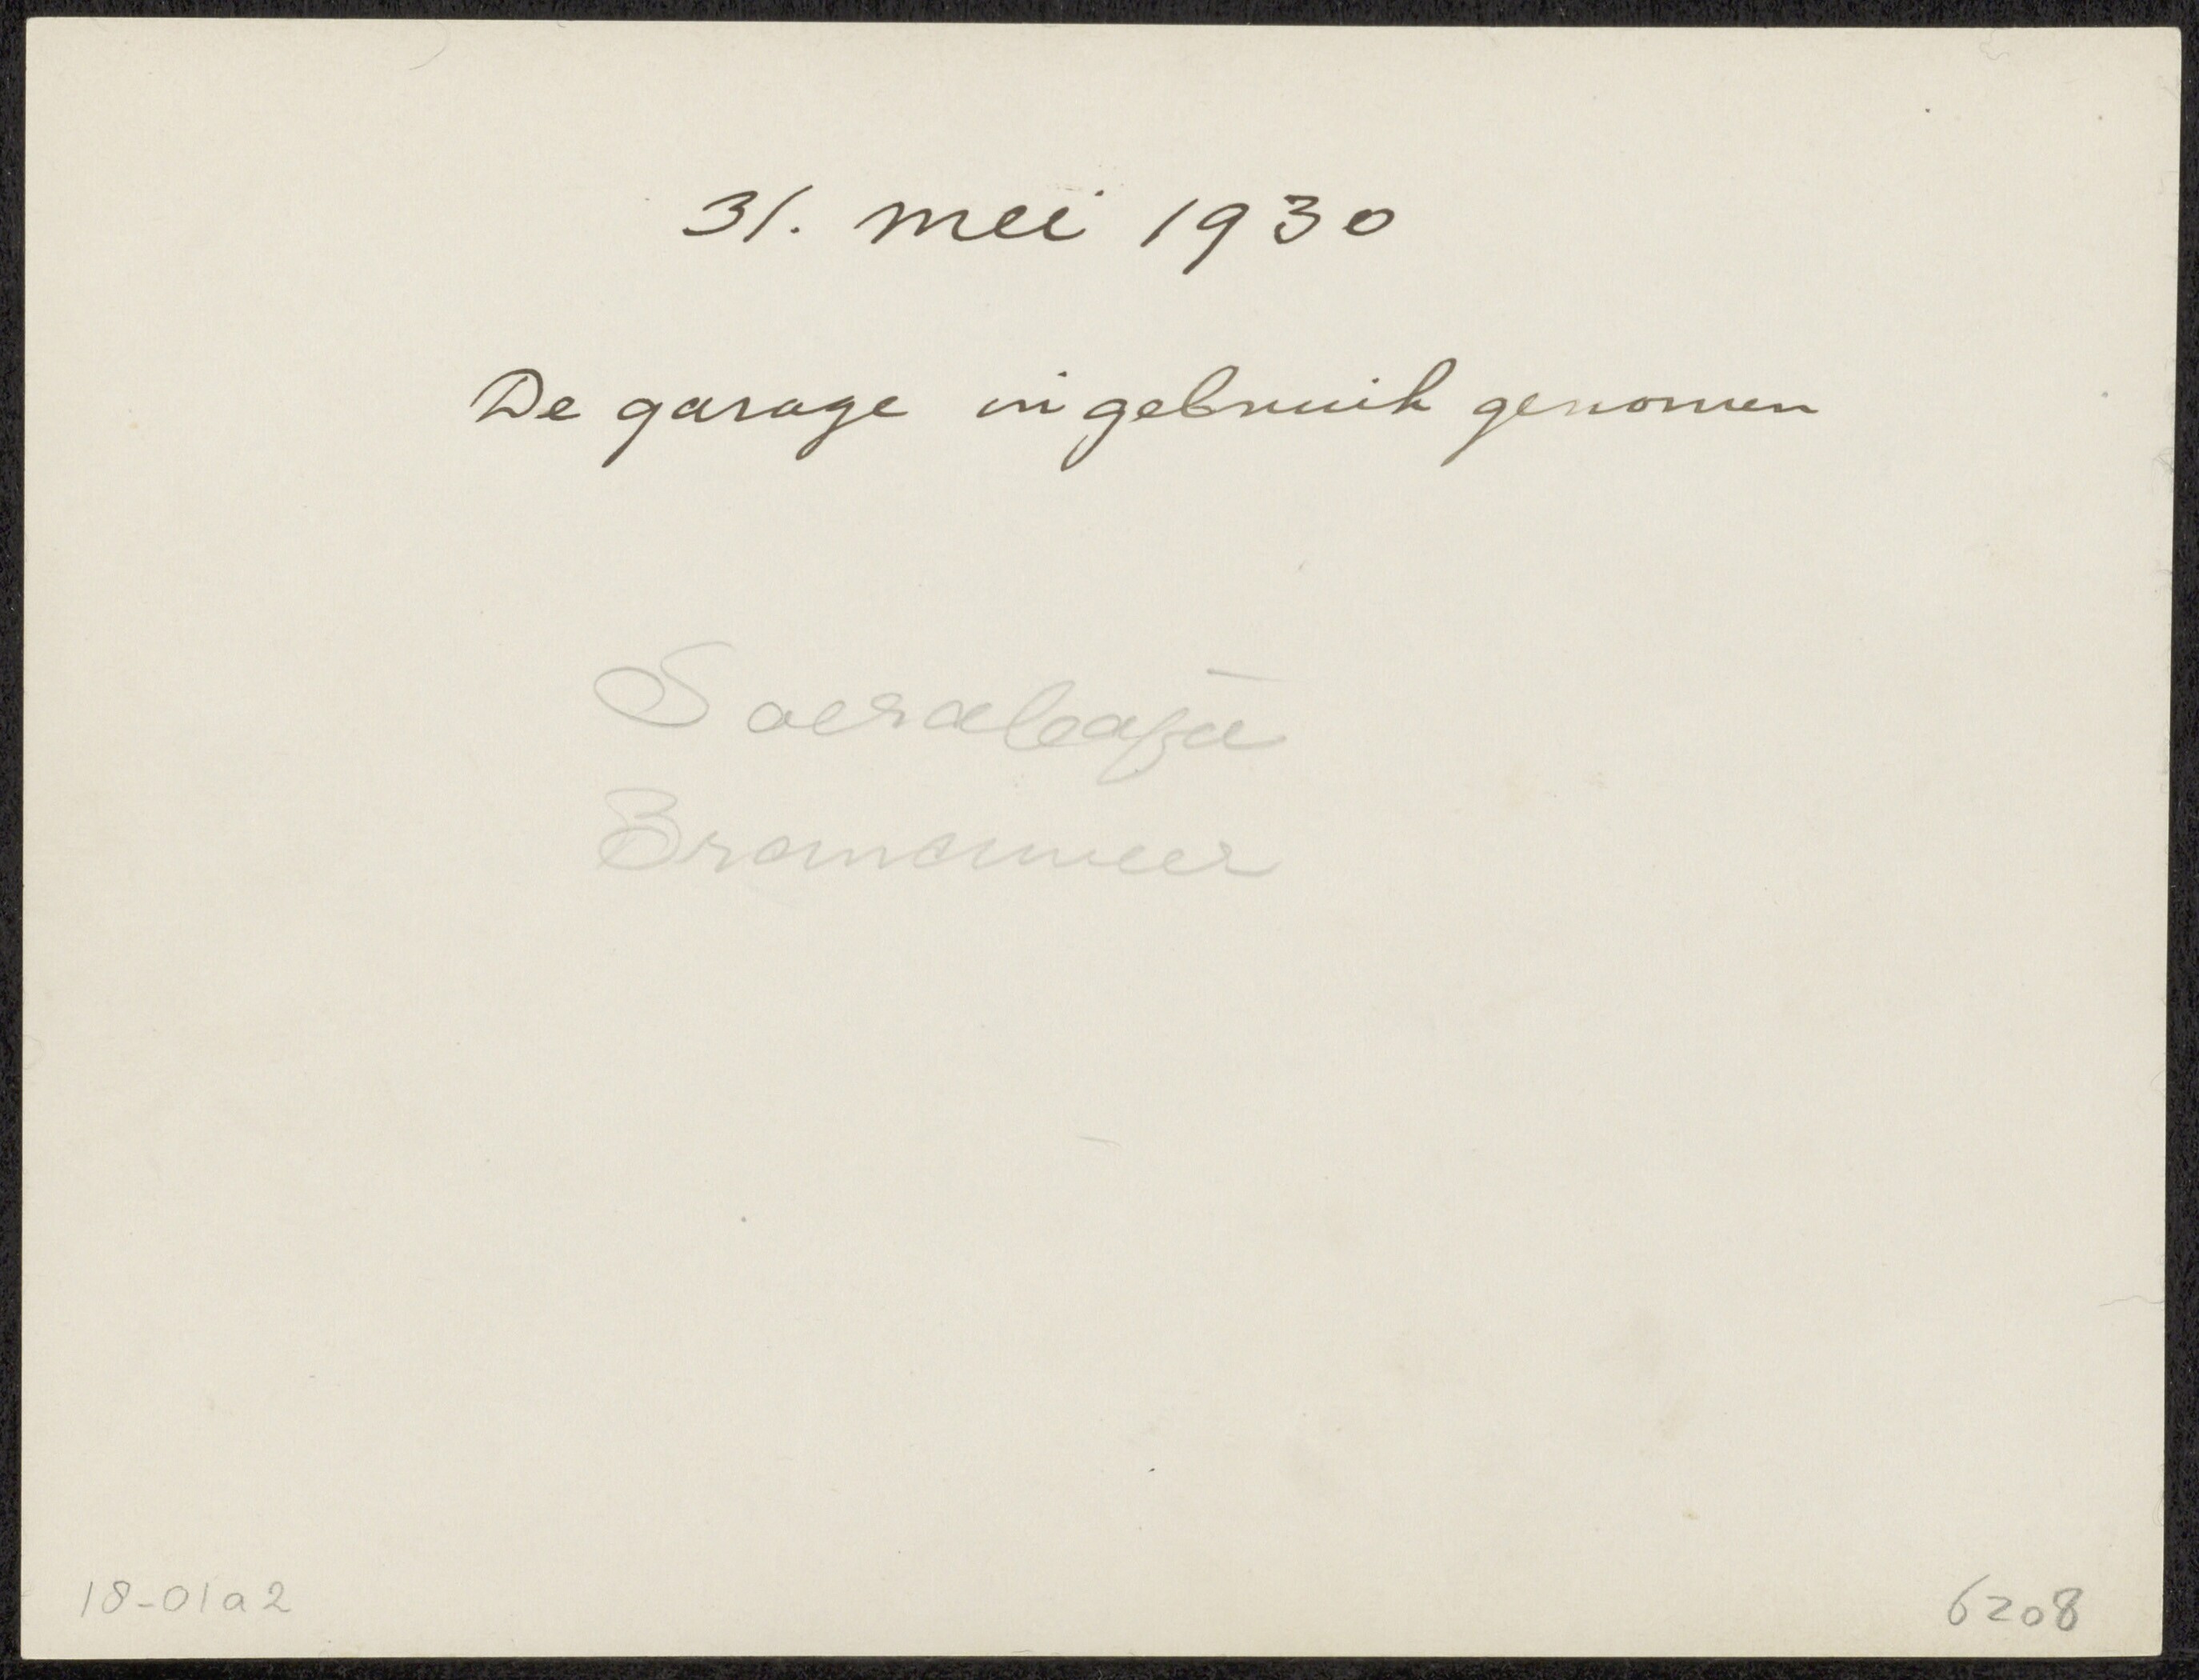 31. mei 1930
De garage in gebruik genomen
Soerabaja
Brandweer
18-01a2
6208